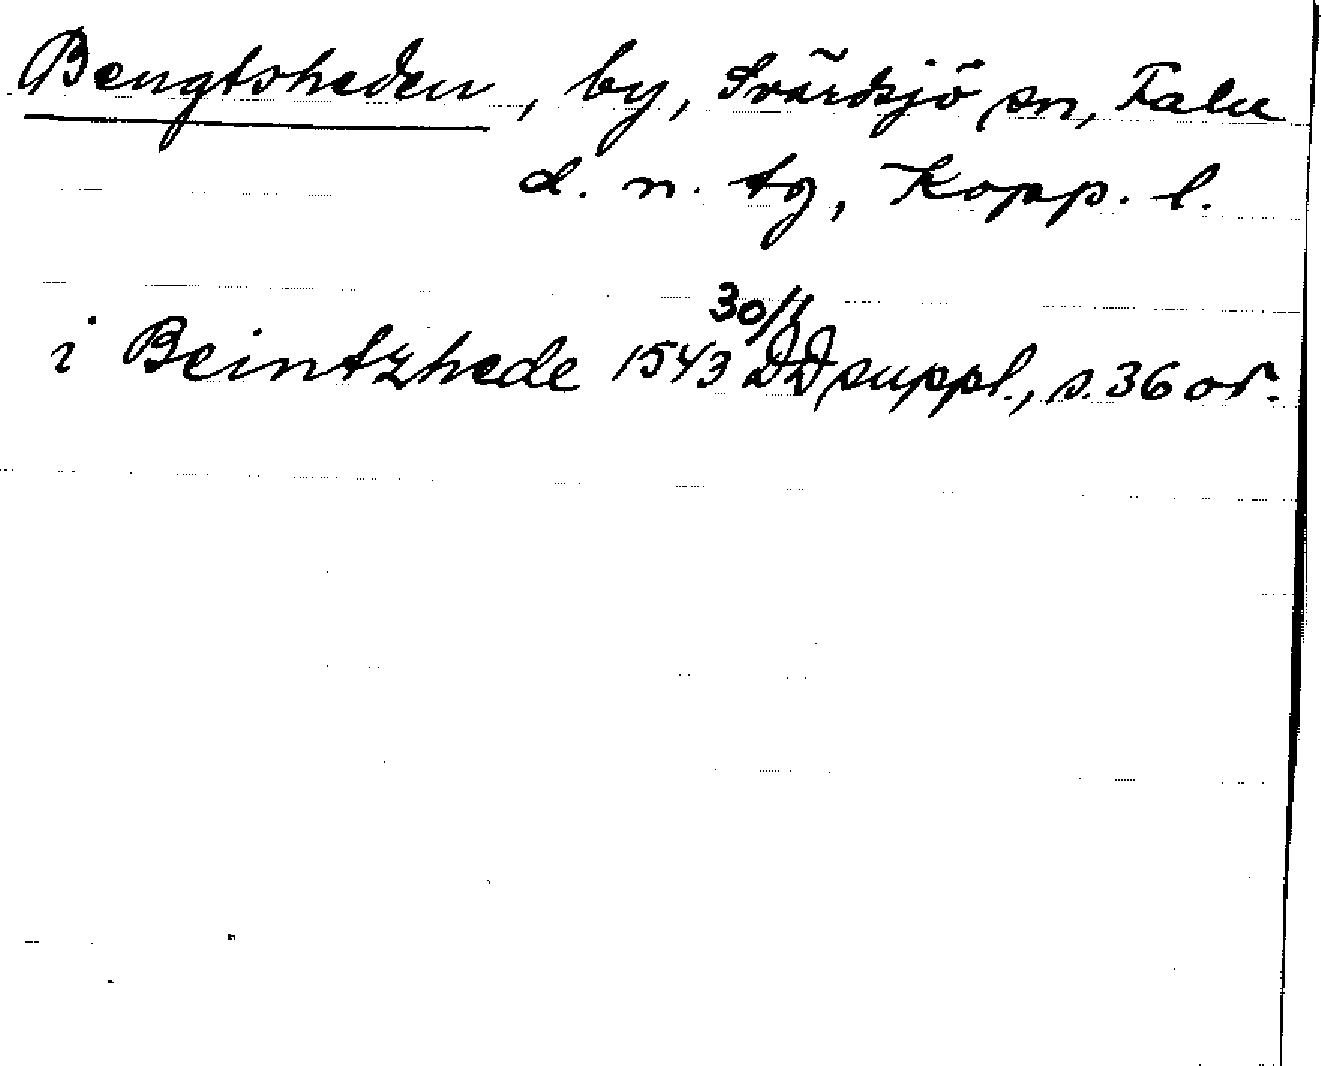 Bengtsheden, by, Svärdsjö sn, Falu
d. n. tg, Kopp. l.
i Beintzhede 1543 30/1 DD suppl., s. 36 or.